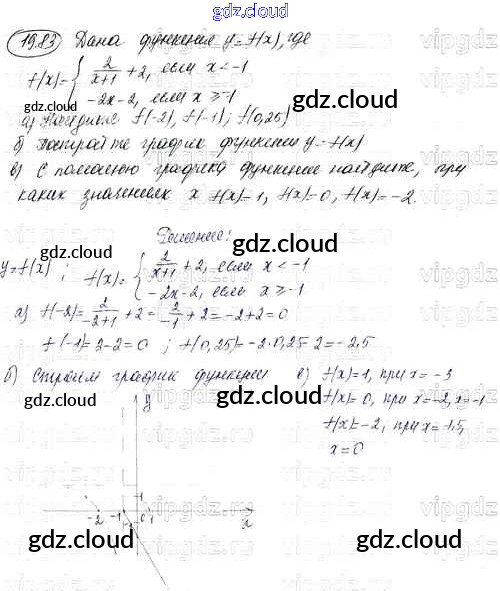 gdz.cloud
19.83 Дана функция y=f(x), где
f(x)= { 2/(x+1) + 2, если x < -1
-2x-2, если x ≥ -1
а) Найдите f(-2), f(-1); f(0,25)
б) Постройте график функции y=f(x)
в) С помощью графика функции найдите, при
каких значениях x f(x)=1, f(x)=0, f(x)=-2.
Решение:
y=f(x) ; f(x)= { 2/(x+1) + 2, если x < -1
-2x-2, если x ≥ -1
а) f(-2)= 2/(-2+1) + 2 = 2/-1 + 2 = -2+2=0
f(-1)=2-2=0 ; f(0,25)=-2·0,25-2=-2,5
б) Строим график функции
в) f(x)=1, при x=-3
f(x)=0, при x=-2, x=-1
f(x)=-2, при x=-1,5,
x=0
y
1
-2 -1 0 1 x
gdz.cloud
vipgdz.ru